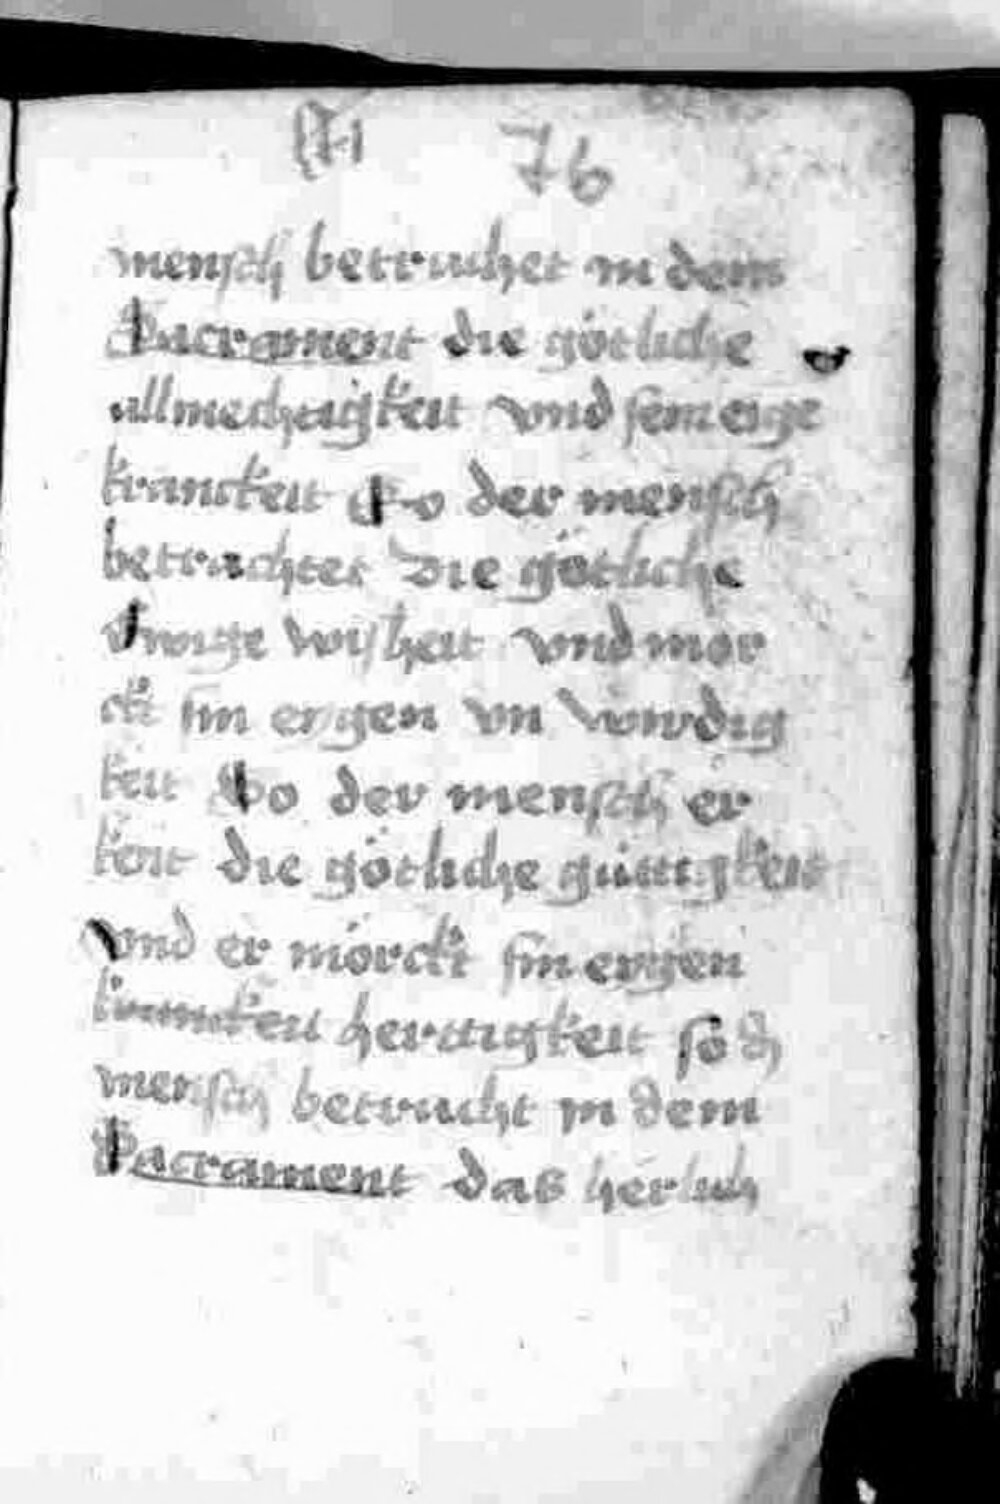 76
mensch betrachet in dem
Sacrament die götliche
allmechtigkeit vnd sein eige
kranckeit So der mensch
betrachtet die götliche
Ewige wisheit vnd mör
ckt sin eygen vn wirdig
keit So der mensch er
kent die götliche güttigkeit
vnd er mörckt sin eygen
krancken hertigkeit so d
mensch betracht in dem
Sacrament das herlich